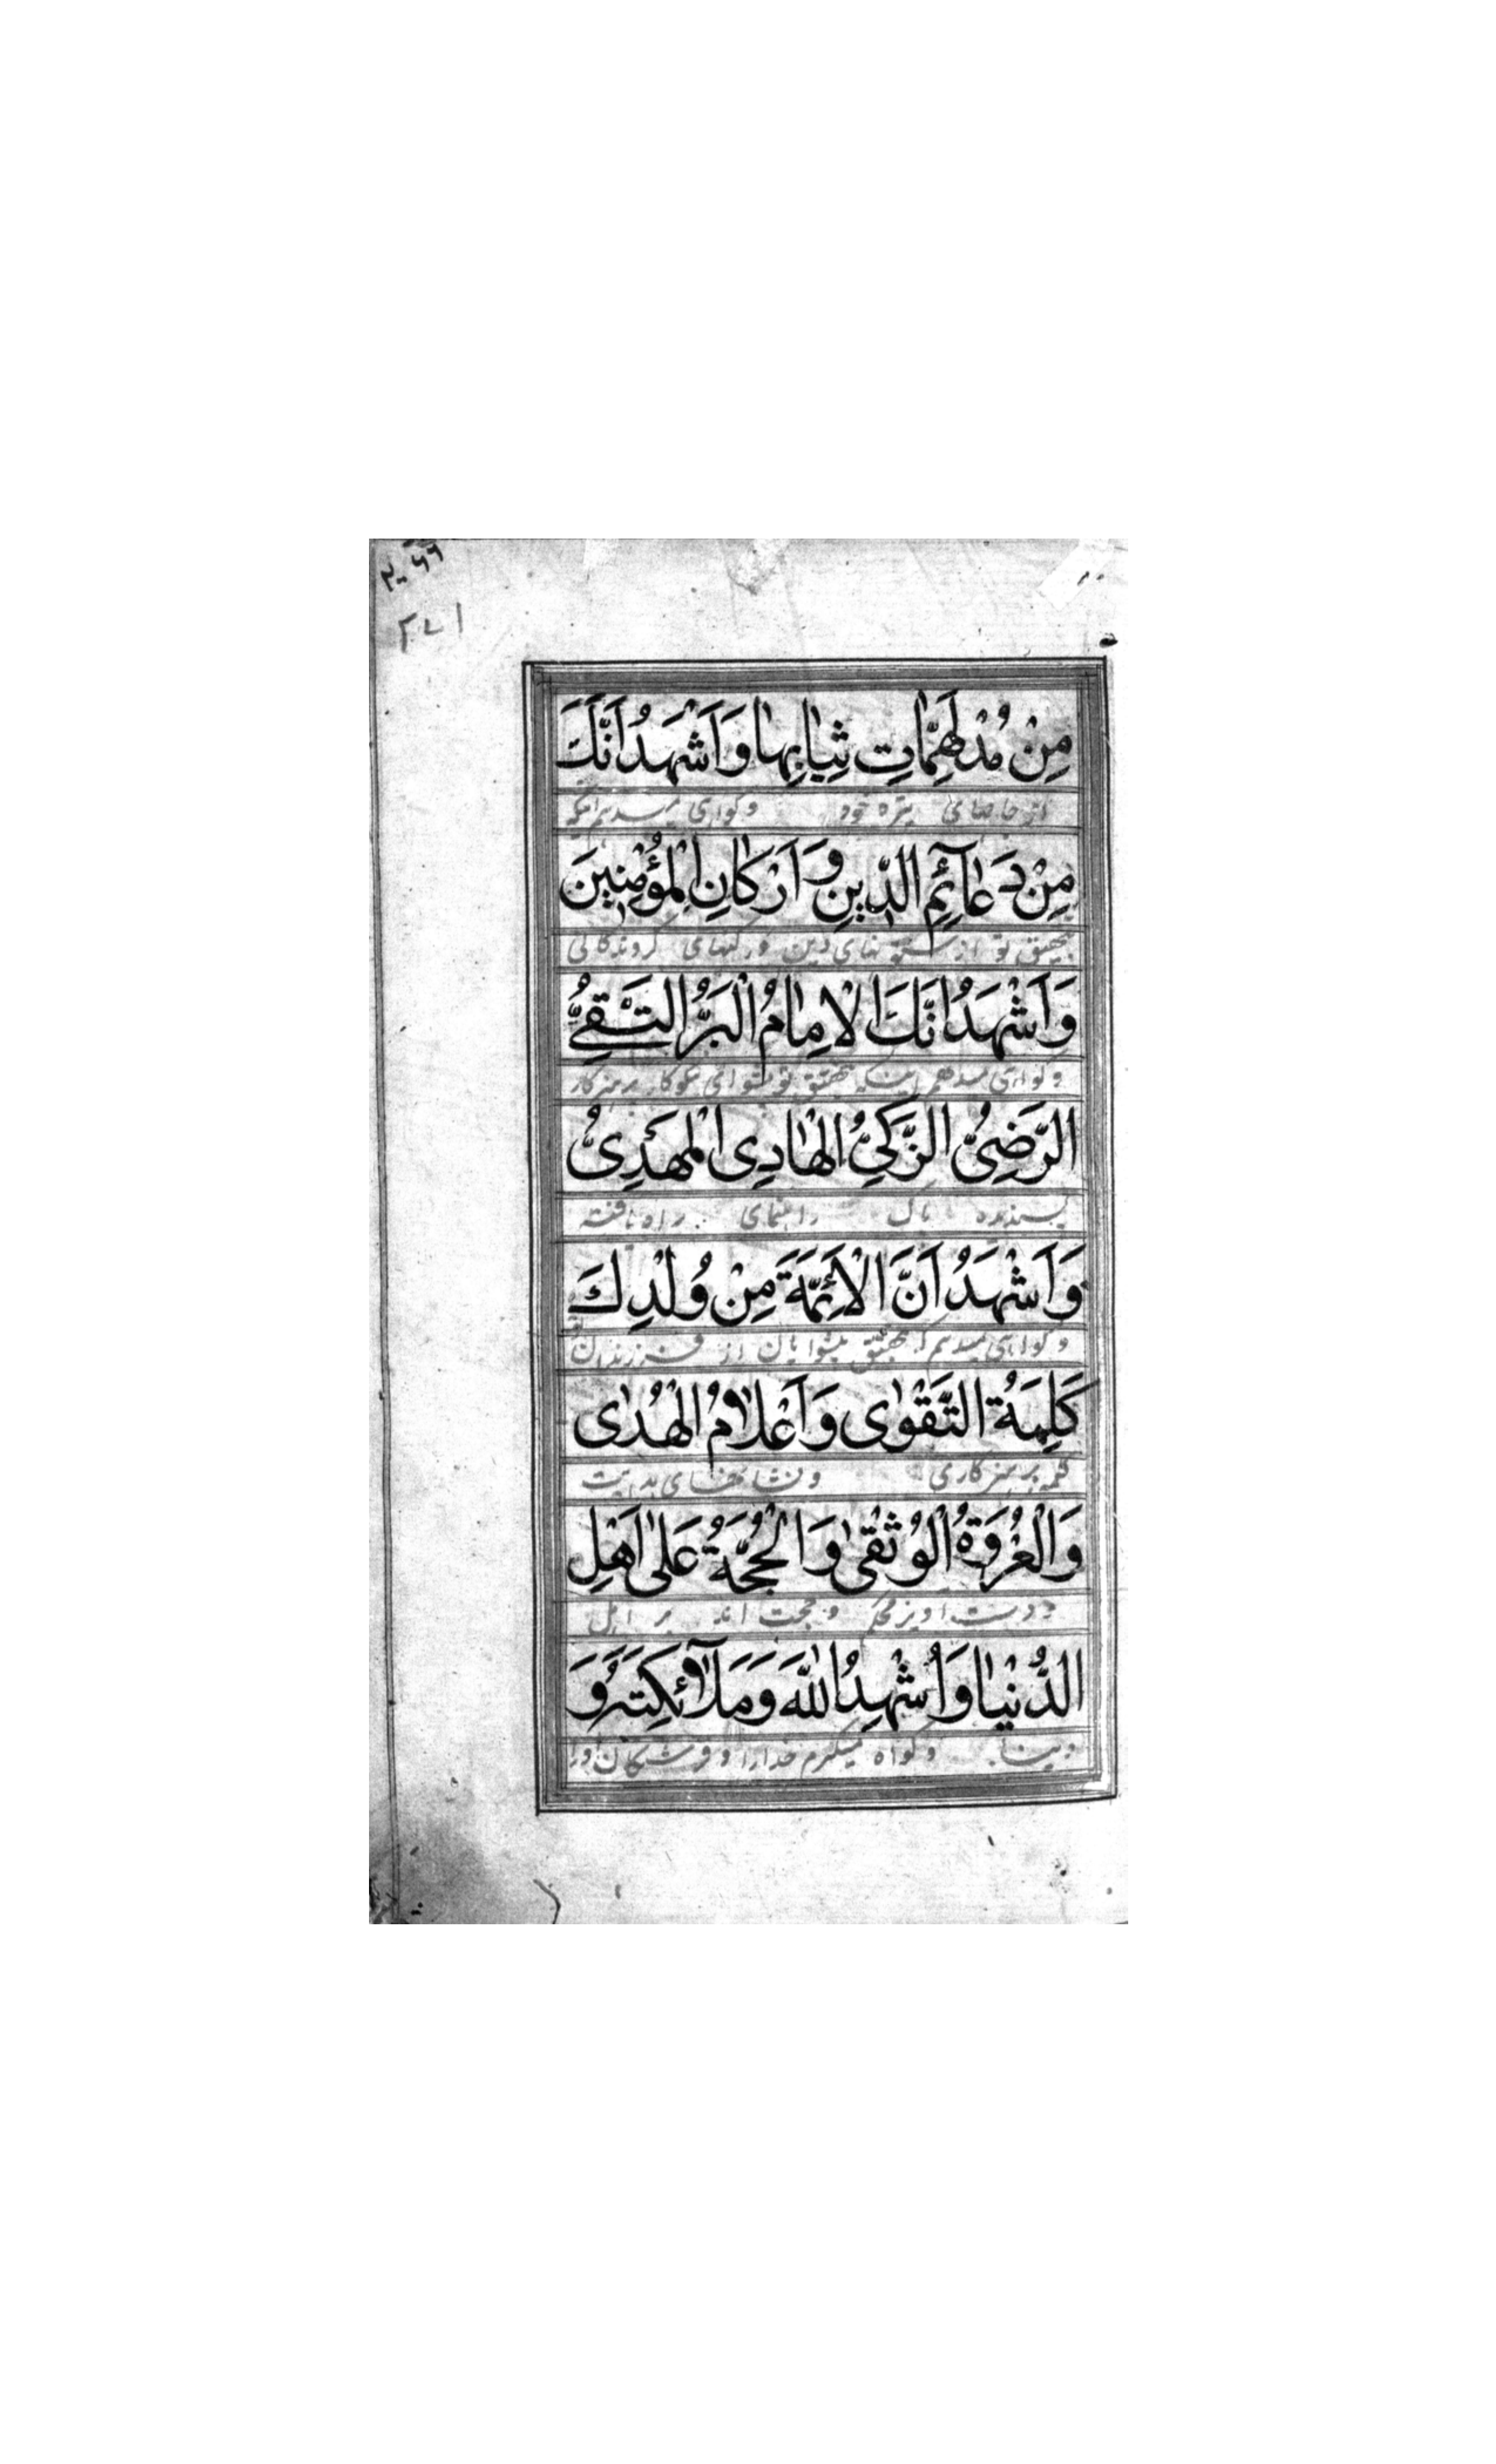 ۲۰۶۶
مِنْ مُدْلَهِمّٰاتِ ثِيٰابِهٰا وَاَشْهَدُ اَنَّكَ
از جامهای تیره خود وگواهی میدهم اینکه
مِنْ دَعٰآئِمِ الدّٖينِ وَاَرْكٰانِ الْمُؤْمِنٖينَ
بتحقیق تو از ستونهای دین ورکنهای گروندگانی
وَاَشْهَدُ اَنَّكَ الْاِمٰامُ الْبَرُّ التَّقِیُّ
وگواهی میدهم اینکه بتحقیق تو پیشوای نیکوکار پرهیزکار
الرَّضِیُّ الزَّكِیُّ الْهٰادِی الْمَهْدِیُّ
پسندیده پاک راهنمای راه یافته
وَاَشْهَدُ اَنَّ الْاَئِمَّةَ مِنْ وُلْدِكَ
وگواهی میدهم که بتحقیق پیشوایان از فرزندان تو
كَلِمَةُ التَّقْوٰی وَاَعْلٰامُ الْهُدٰی
کلمه پرهیزکاری ونشانهای هدایت
وَالْعُرْوَةُ الْوُثْقٰی وَالْحُجَّةُ عَلٰی اَهْلِ
ودست اویز محکم وحجت اند بر اهل
الدُّنْيٰا وَاُشْهِدُ اللّٰهَ وَمَلٰٓائِكَتَهُ وَ
دنیا وگواه میگیرم خدارا وفرشتگان اورا